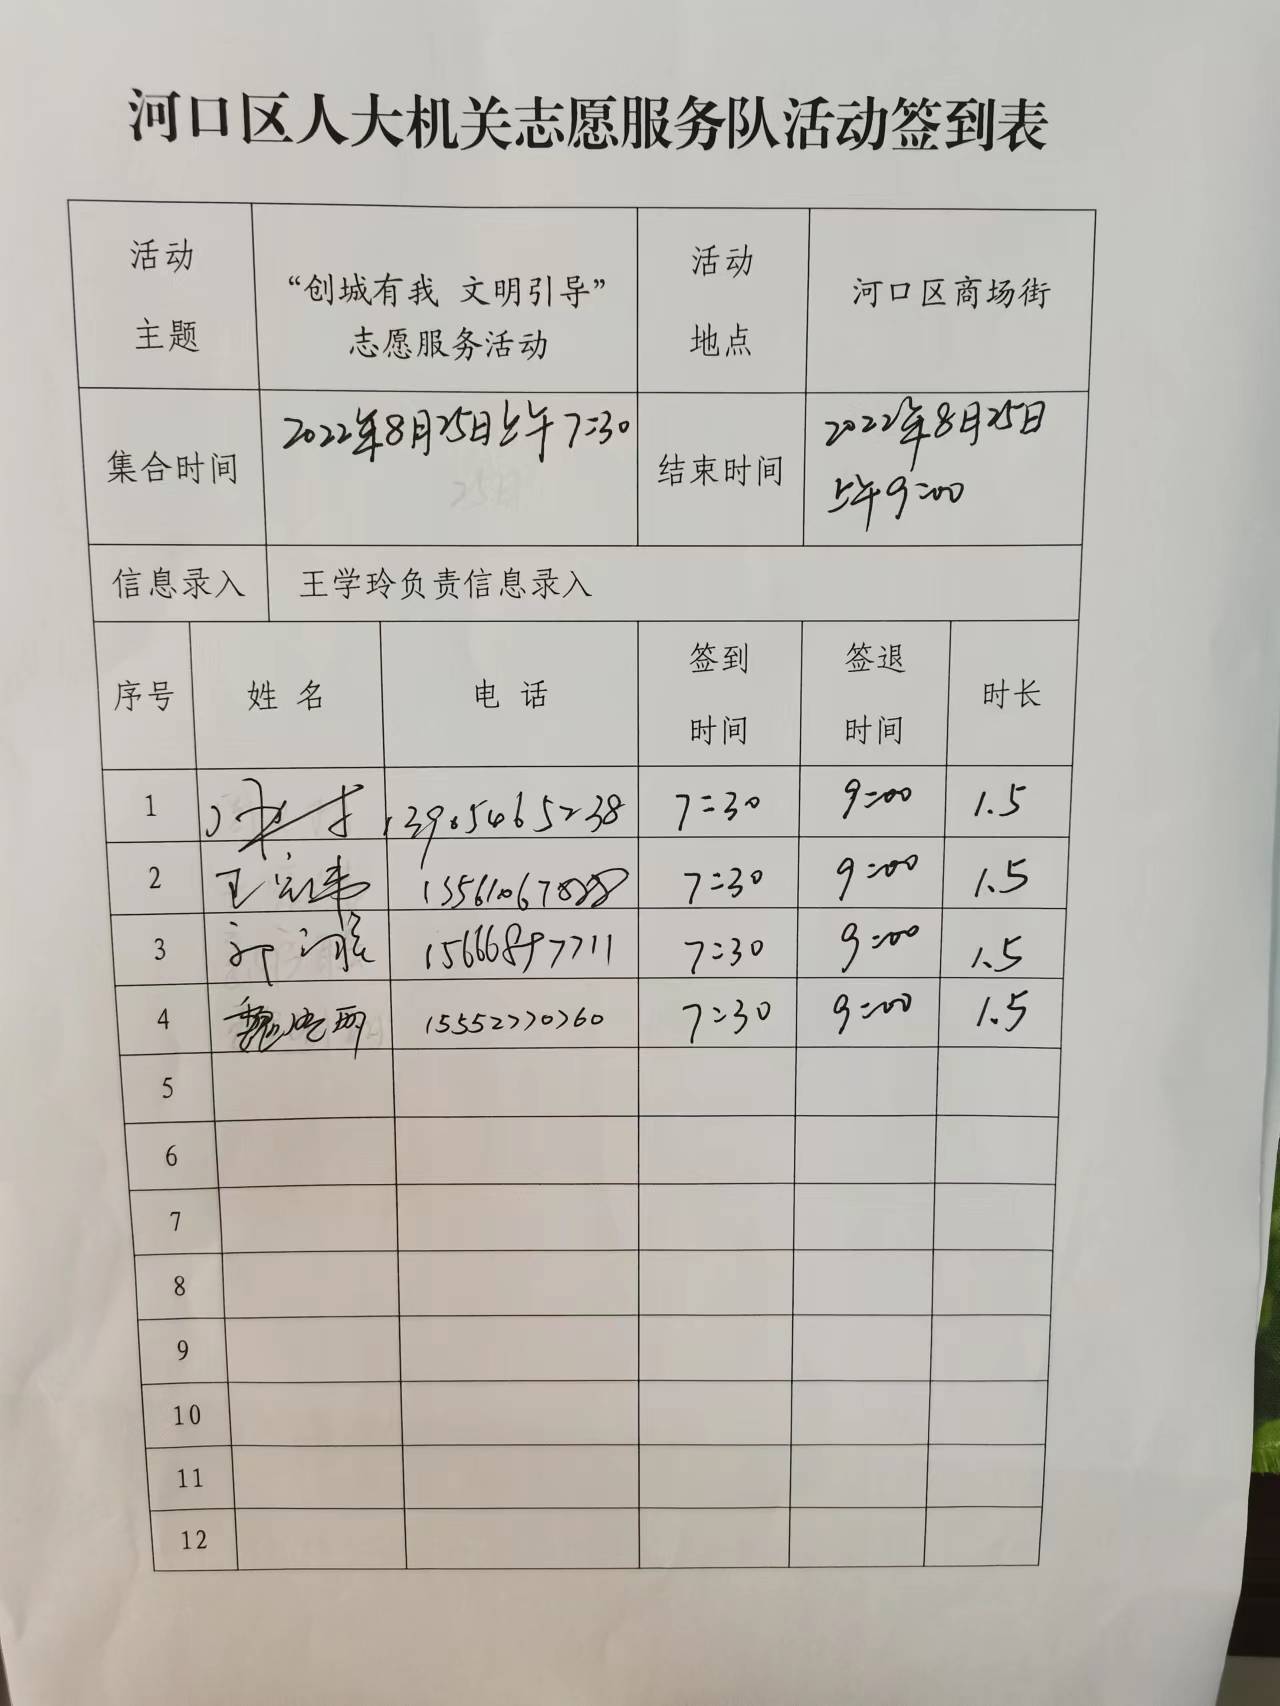 河口区人大机关志愿服务队活动签到表
活动主题 “创城有我 文明引导” 活动地点 河口区商场街
志愿服务活动
集合时间 2022年8月25日上午7:30 结束时间 2022年8月25日
上午9:00
信息录入 王学玲负责信息录入
序号 姓名 电话 签到时间 签退时间 时长
1 13905465238 7:30 9:00 1.5
2 7:30 9:00 1.5
3 15666897711 7:30 9:00 1.5
4 魏晓丽 15552770760 7:30 9:00 1.5
5
6
7
8
9
10
11
12